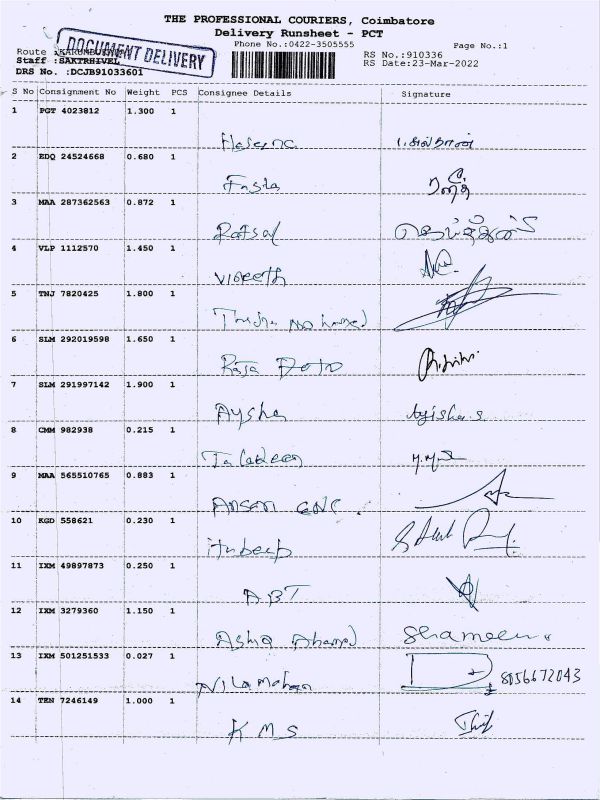 THE PROFESSIONAL COURIERS, Coimbatore
Delivery Runsheet - PCT
Phone No.:0422-3505555 Page No.:1
Route :
DOCUMENT DELIVERY
RS No.:910336
Staff :SAKTHIVEL
RS Date:23-Mar-2022
DRS No. :DCJB91033601
S No Consignment No Weight PCS Consignee Details Signature
1 PGT 4023812 1.300 1
Hasana
2 EDQ 24524668 0.680 1
Fasla
3 MAA 287362563 0.872 1
Rafsal
4 VLP 1112570 1.450 1
Vigeeth
5 TNJ 7820425 1.800 1
6 SLM 292019598 1.650 1
Raja Foto
7 SLM 291997142 1.900 1
Aysha Ayisha.s
8 CMM 982938 0.215 1
9 MAA 565510765 0.883 1
Ansar CNC
10 KGD 558621 0.230 1
11 IXM 49897873 0.250 1
ABT
12 IXM 3279360 1.150 1
Ashiq Ahamed Shameer
13 IXM 501251533 0.027 1
Nilamohan 8056672043
14 TEN 7246149 1.000 1
KMS